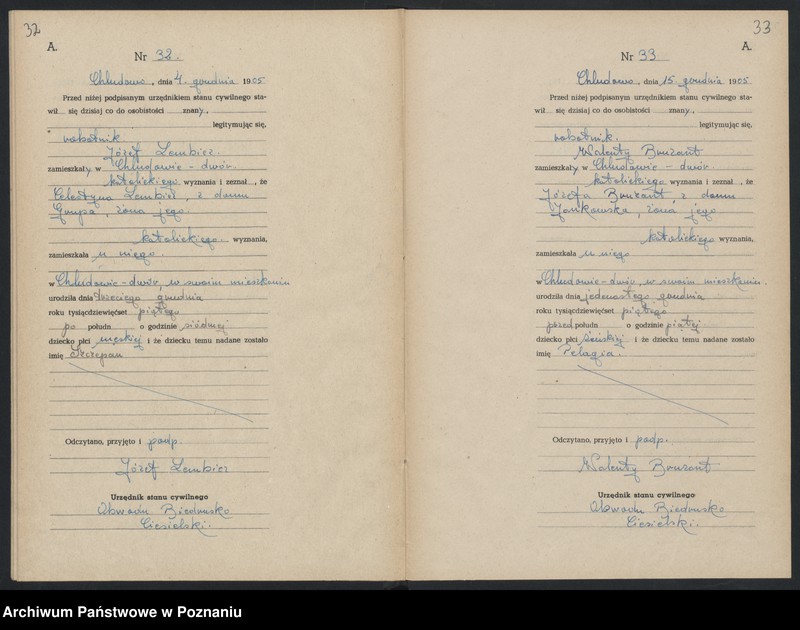 32
A.
Nr 32.
Chludowo, dnia 4. grudnia 1905
Przed niżej podpisanym urzędnikiem stanu cywilnego sta-
wił się dzisiaj co do osobistości znany,
legitymując się,
robotnik
Józef Lembicz.
zamieszkały w Chludowie - dwór
katolickiego wyznania i zeznał, że
Celestyna Lembicz, z domu
Grupa, żona jego
katolickiego wyznania,
zamieszkała u niego.
w Chludowie-dwór, w swoim mieszkaniu
urodziła dnia trzeciego grudnia
roku tysiącdziewięćset piątego
po połudn o godzinie siódmej
dziecko płci męskiej i że dziecku temu nadane zostało
imię Szczepan
Odczytano, przyjęto i podp.
Józef Lembicz
Urzędnik stanu cywilnego
Obwodu Biedrusko
Ciesielski.
33
A.
Nr 33
Chludowo, dnia 15. grudnia 1905.
Przed niżej podpisanym urzędnikiem stanu cywilnego sta-
wił się dzisiaj co do osobistości znany,
legitymując się,
robotnik.
Walenty Bonzant
zamieszkały w Chludowie - dwór
katolickiego wyznania i zeznał, że
Józefa Bonzant, z domu
Jankowska, żona jego
katolickiego wyznania,
zamieszkała u niego
w Chludowie-dwór, w swoim mieszkaniu.
urodziła dnia jedenastego grudnia
roku tysiącdziewięćset piątego
przed połudn o godzinie piątej
dziecko płci żeńskiej i że dziecku temu nadane zostało
imię Pelagia.
Odczytano, przyjęto i podp.
Walenty Bonzant
Urzędnik stanu cywilnego
Obwodu Biedrusko
Ciesielski.
Archiwum Państwowe w Poznaniu